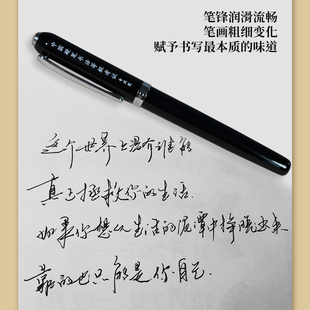 笔锋润滑流畅
笔画粗细变化
赋予书写最本质的味道
中国硬笔书法等级考试
这个世界上没有谁能
真正拯救你的生活.
如果你想从生活的泥潭中挣脱出来
靠的也只能是你自己.